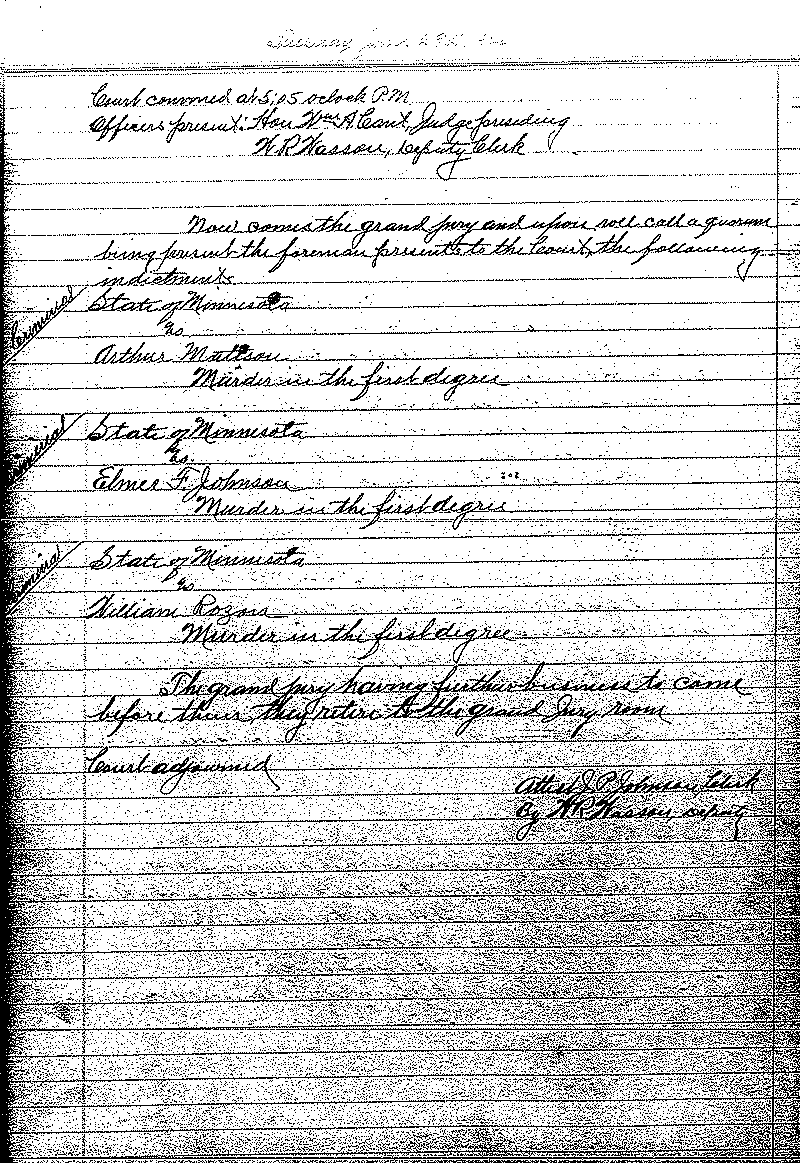 Tuesday June 29th
Court convened at 5:05 oclock P.M
Officers present: Hon Wm A Cant, Judge presiding
W R Wasson, Deputy Clerk
Now comes the grand jury and upon roll call a quorum
being present the foreman presents to the Court, the following
indictments
Criminal
State of Minnesota
vs.
Arthur Mattson
Murder in the first degree
Criminal
State of Minnesota
vs.
Elmer F. Johnson
Murder in the first degree
Criminal
State of Minnesota
vs.
William Rozon
Murder in the first degree
The grand jury having further business to come
before them, they retire to the grand Jury room
Court adjourned
Attest J. P. Johnson, Clerk
By W R Wasson, deputy